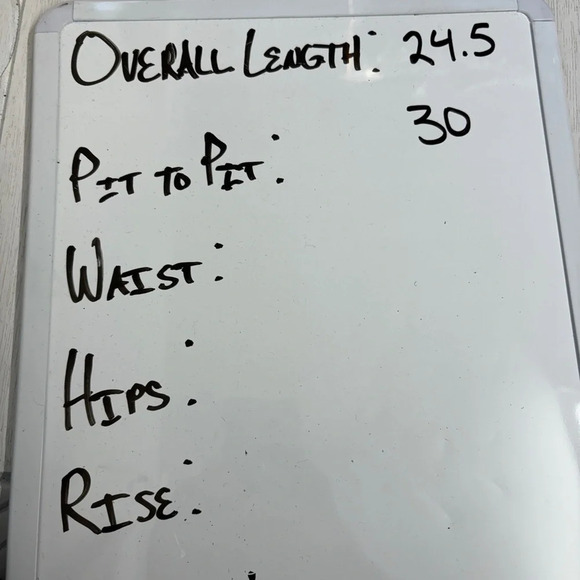 OVERALL LENGTH: 24.5
30
PIT TO PIT:
WAIST:
HIPS:
RISE: